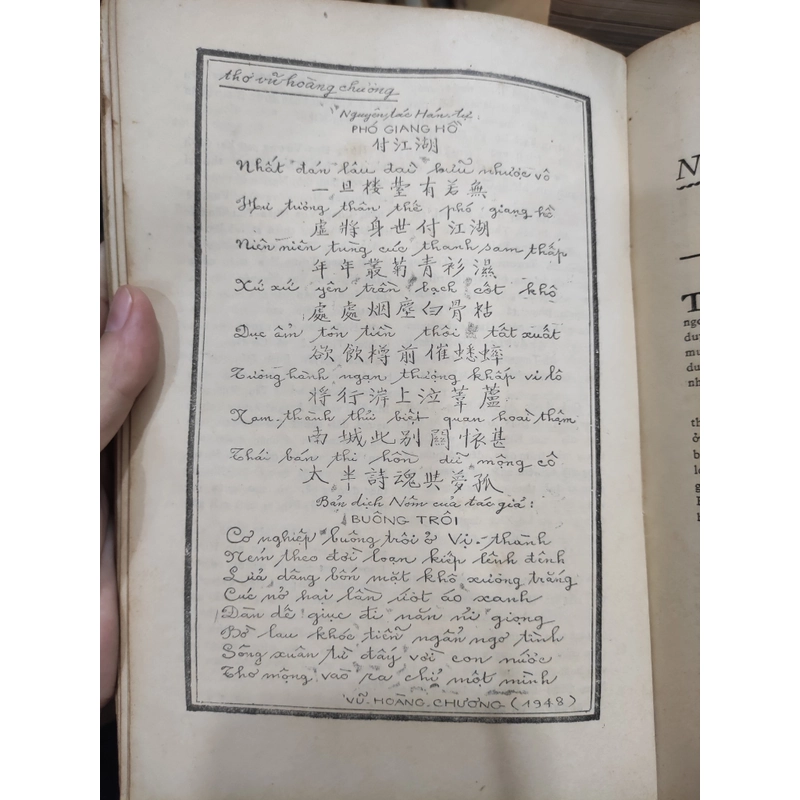 thơ vũ hoàng chương
Nguyên tác Hán tự
PHÓ GIANG HỒ
付江湖
Nhất đán lâu đài hữu nhược vô
一旦楼臺有若無
Hư tương thân thế phó giang hồ
虛將身世付江湖
Niên niên tùng cúc thanh sam thấp
年年叢菊青衫濕
Xứ xứ yên trần bạch cốt khô
處處烟塵白骨枯
Dục ẩm tôn tiền thôi tất xuất
欲飲樽前催蟋蟀
Tương hành ngạn thượng khấp vi lô
將行岸上泣葦蘆
Nam thành thử biệt quan hoài thậm
南城此別關懷甚
Thái bán thi hồn dữ mộng cô
太半詩魂與夢孤
Bản dịch Nôm của tác giả:
BUÔNG TRÔI
Cơ nghiệp buông trôi ở Vị-thành
Ném theo đời loạn kiếp lênh đênh
Lửa dâng bốn mặt khô xương trắng
Cúc nở hai lần ướt áo xanh
Dàn dế giục đi năn nỉ giọng
Bờ lau khóc tiễn ngẩn ngơ tình
Sông xuân từ đấy vời con nước
Thơ mộng vào ra chỉ một mình
VŨ HOÀNG CHƯƠNG (1948)
N
T